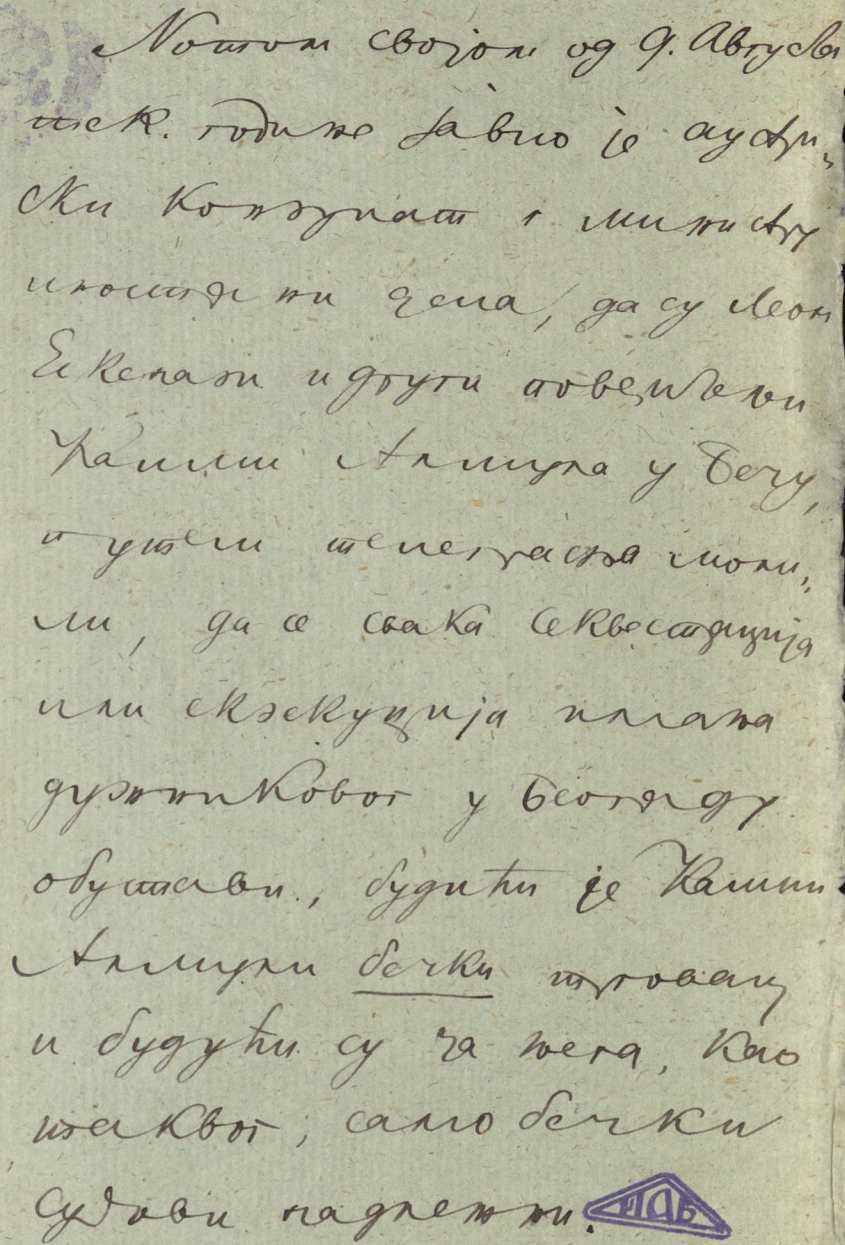 Нотом својом од 9. Августа
тек. године јавио је аустри„
ски конзулат г. министру
инострани дела, да су Леон
Ескенази и други поверитељи
у Бечу,
путем телеграфа моли„
ли, да се свака секвестрација
или екзекуција имања
дужниковог у Београду
обустави, будићи је
бечки трговац
и будући су за њега, као
таквог, само бечки
судови надлежни.
ИАБ